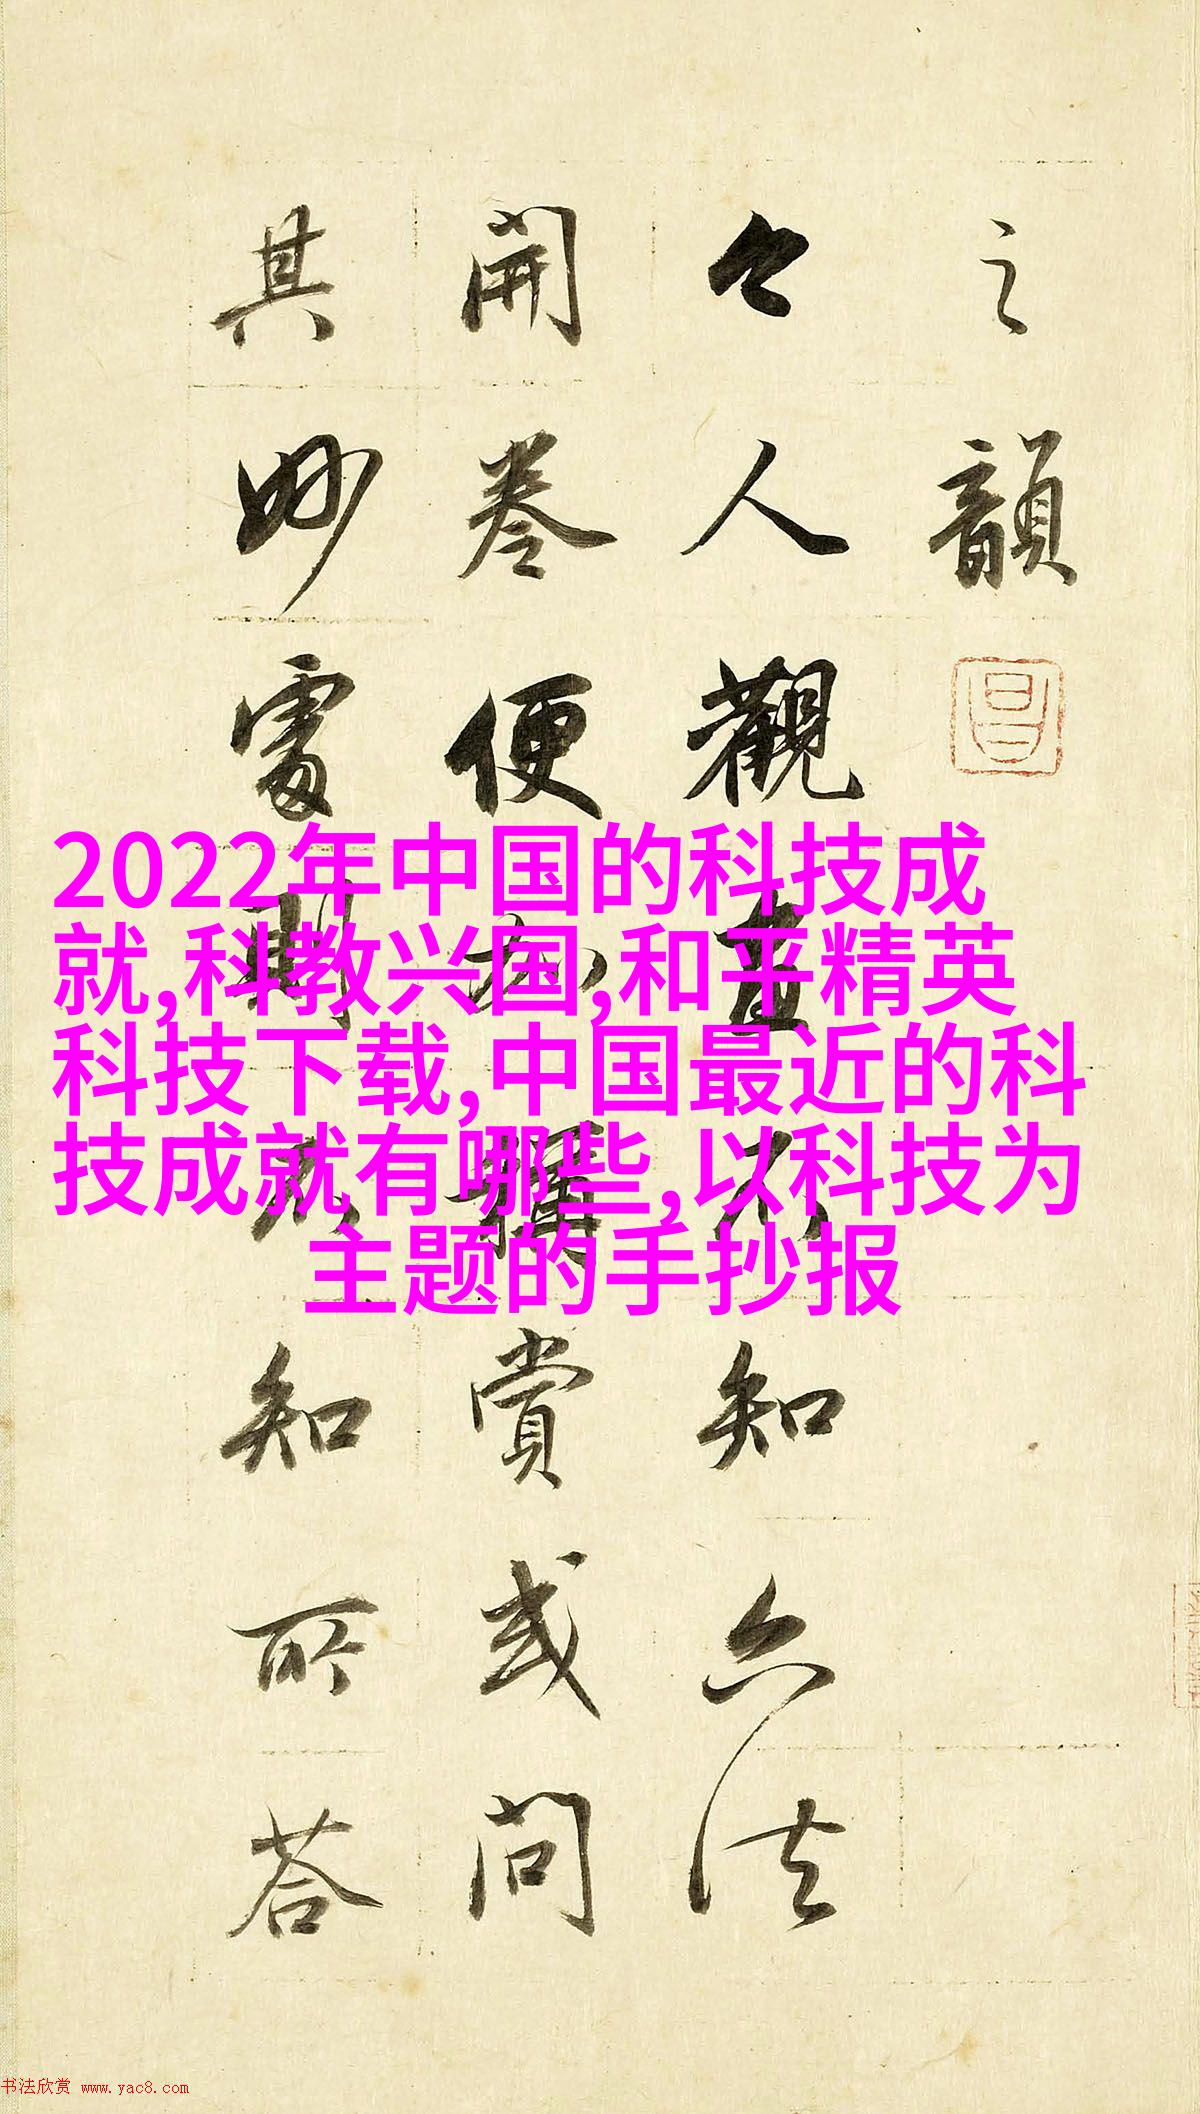 之韻
々人觀畫不知六法
開卷便加稱賞或問
其妙處則不知所荅
2022年中国的科技成
就,科教兴国,和平精英
科技下载,中国最近的科
技成就有哪些,以科技为
主题的手抄报
书法欣赏 www.yac8.com